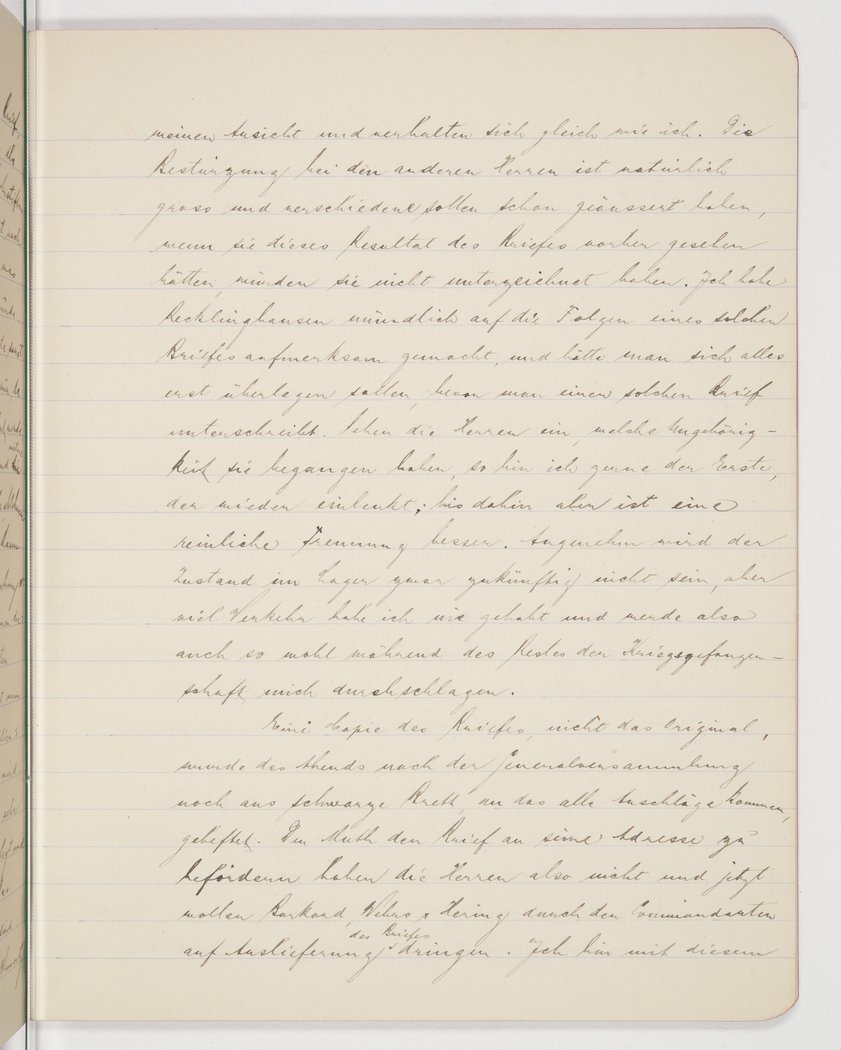 meinen Ansicht und verhalten sich gleich wie ich. Die
Bestürzung bei den anderen Herren ist natürlich
gross und verschiedene sollen schon geäussert haben,
wenn sie dieses Resultat des Briefes vorher gesehen
hätten, würden sie nicht unterzeichnet haben. Ich habe
Recklinghausen mündlich auf die Folgen eines solchen
Briefes aufmerksam gemacht, und hätte man sich alles
erst überlegen sollen, bevor man einen solchen Brief
unterschreibt. Sehen die Herren ein, welche Ungehörig-
keit sie begangen haben, so bin ich gerne der Erste,
der wieder einlenkt; bis dahin aber ist eine
reinliche Trennung besser. Angenehm wird der
Zustand im Lager zwar zukünftig nicht sein, aber
viel Verkehr habe ich nie gehabt und werde also
auch so wohl während des Restes der Kriegsgefangen-
schaft mich durchschlagen.
Eine Copie des Briefes, nicht das Original,
wurde des Abends nach der Generalversammlung
noch ans schwarze Brett, an das alle Anschläge kommen,
geheftet. Den Muth den Brief an seine Adresse zu
befördern haben die Herren also nicht und jetzt
wollen Barkard, Wehrs & Hering durch den Commandanten
auf Auslieferung des Briefes dringen. Ich bin mit diesem